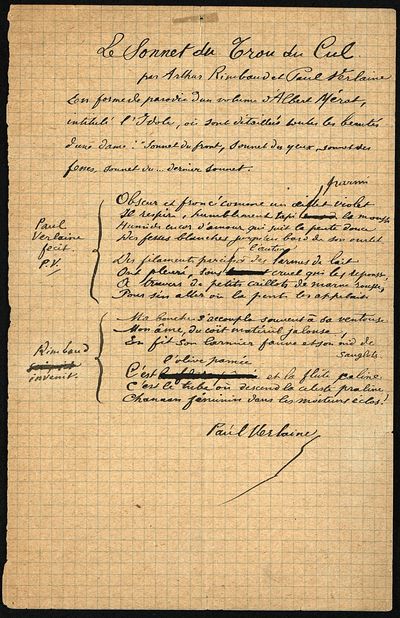 Le Sonnet du Trou du Cul.
par Arthur Rimbaud et Paul Verlaine
En forme de parodie d'un volume d'Albert Mérat,
intitulé l'Idole, où sont détaillées toutes les beautés
d'une dame : "Sonnet du front, Sonnet des yeux, sonnet des
fesses, sonnet du... dernier sonnet.
Paul
Verlaine
fecit
P.V.
parmi
Obscur et froncé comme un œillet violet
Il respire, humblement tapi la mousse
Humide encor d'amour qui suit la pente douce
Des fesses blanches jusqu'au bord de son ourlet
l'autan
Des filaments pareils à des larmes de lait
Ont pleuré, sous cruel qui les repousse,
À travers de petits caillots de marne rousse,
Pour s'en aller où la pente les appelait.
Rimbaud
invenit.
Ma bouche s'accoupla souvent à sa ventouse
Mon âme, du coït matériel jalouse,
En fit son larmier fauve et son nid de
sanglots.
l'olive pâmée
C'est et la flûte câline
C'est le tube où descend la céleste praline
Chanaan féminin dans les moiteurs éclos!
Paul Verlaine